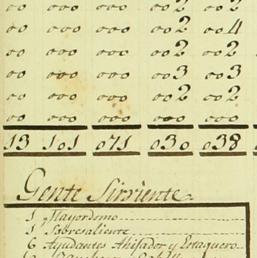 oo ooo ooo oo2 oo2
oo ooo ooo oo2 oo4
oo ooo ooo oo2 oo2
oo ooo ooo oo3 oo3
oo ooo ooo oo2 oo2
oo ooo ooo ooo ooo
13 101 071 030 038
Gente Sirviente.
1 Mayordomo
1 Sobresaliente
6 Ayudantes Ahijador y Estaquero